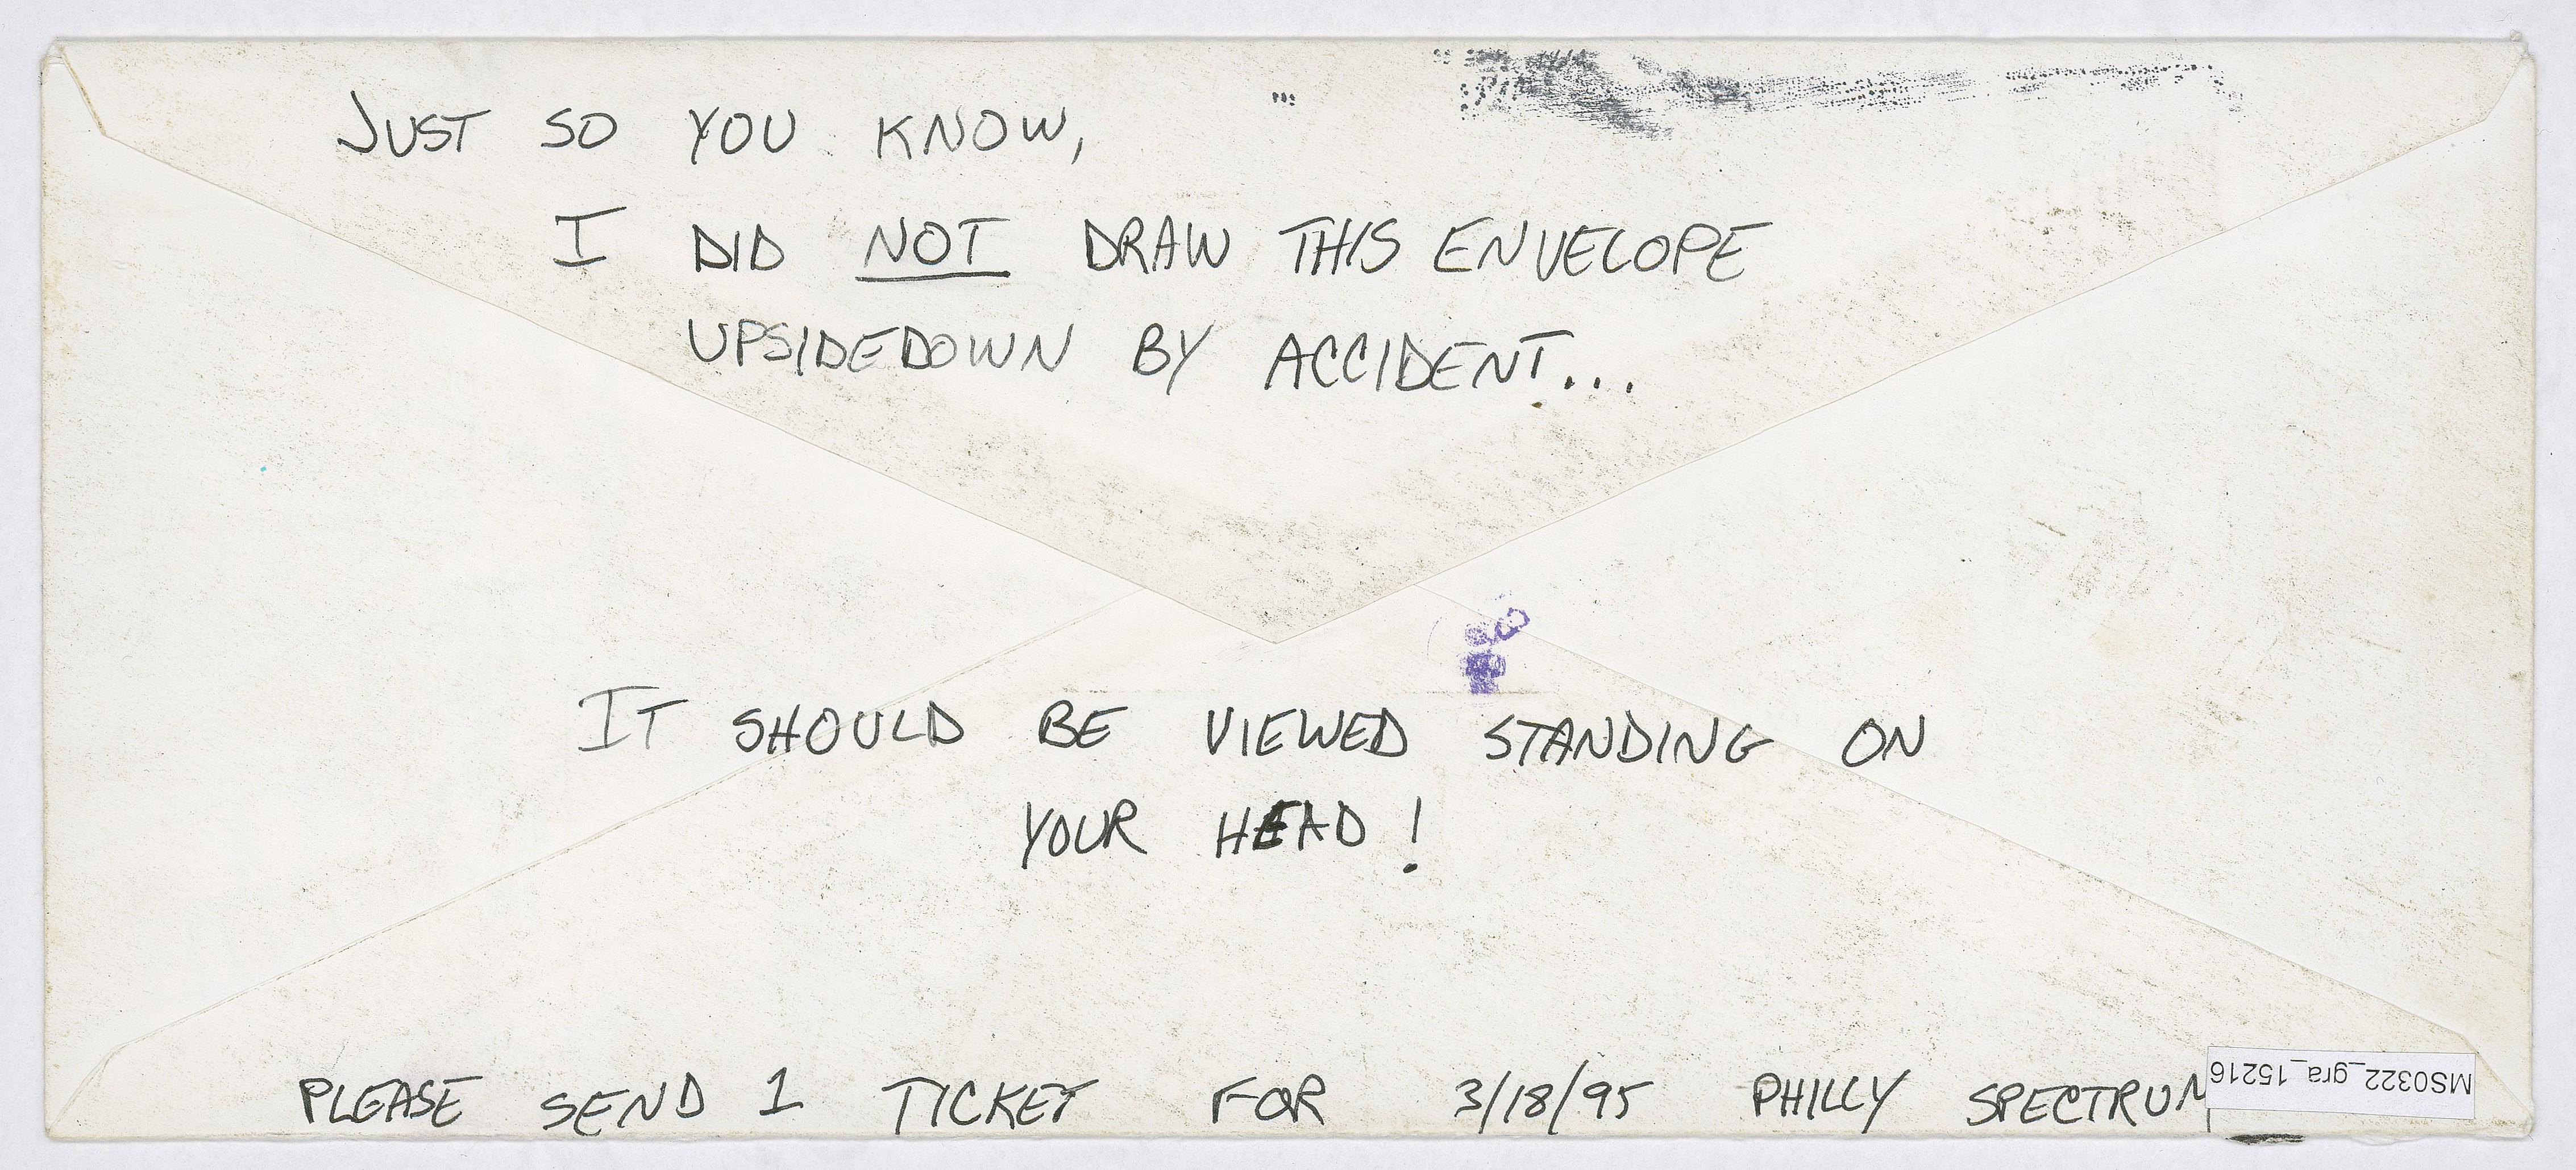 JUST SO YOU KNOW,
I DID NOT DRAW THIS ENVELOPE
UPSIDEDOWN BY ACCIDENT...
IT SHOULD BE VIEWED STANDING ON
YOUR HEAD!
PLEASE SEND 1 TICKET FOR 3/18/95 PHILLY SPECTRUM
MS0322_gra_15216